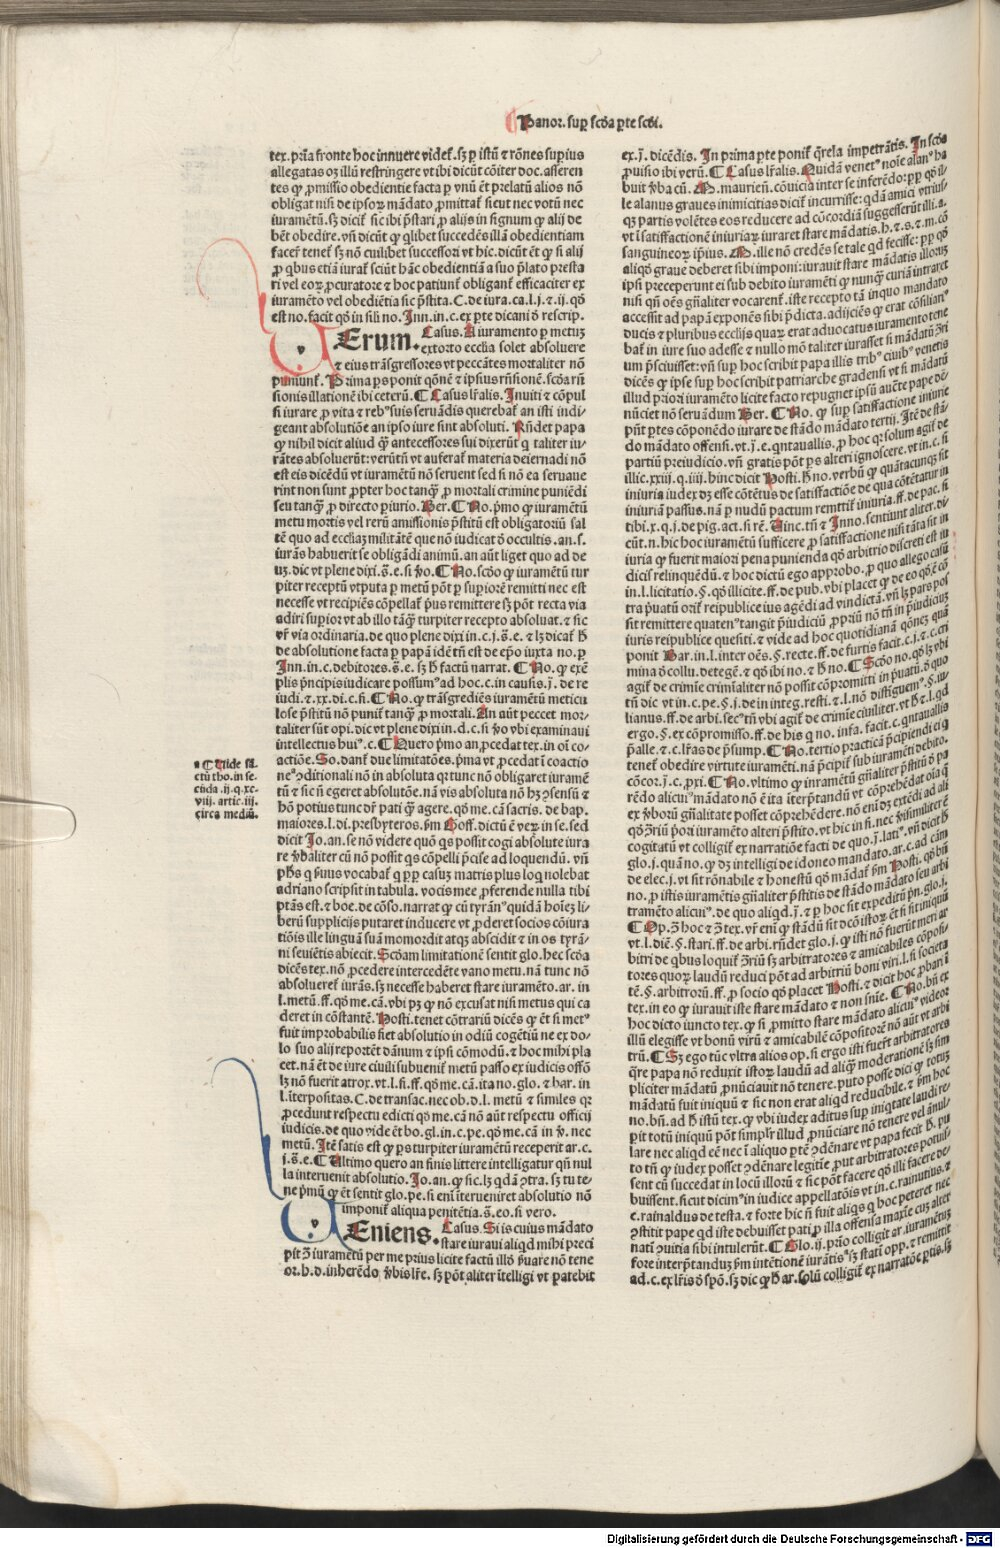 Panor. sup̄ sc̄da p̲te sc̄di.
tex. pri̅a fronte hoc innuere videt̄. sꝫ p̲ istū ⁊ rōnes sup̲ius
allegatas oꝫ illū restringere vt ibi dicūt cōiter doc. asseren
tes ꝙ ꝓmissio obedientie facta p̲ vnū ēt prelatū alios nō
obligat nisi de ipsoꝝ mādato ꝓmittat̄ sicut nec votū nec
iuramētū. sꝫ dicit̄ sic ibi p̄stari ꝓ alijs in signum ꝙ alij de
bēt obedire. vn̄ dicūt ꝙ q̄libet succedēs illā obedientiam
facer̄ tenet̄ sꝫ nō cuilibet successori vt hic. dicūt ēt ꝙ si alij
ꝓ qbus etiā iurat̄ sciūt hāc obedientiā a suo p̄lato presta
ri vel eoꝝ ꝓcuratore ⁊ hoc patiunt̄ obligant̄ efficaciter ex
iuramēto vel obediētia sic p̄stita. C. de iura. ca. l. j. ⁊ .ij. qō
est no. facit qō in sili no. Inn. in. c. ex p̲te dicani ō rescrip.
Erum. Casus. A iuramento p̲ metuꝫ
extorto ecclia solet absoluere
⁊ eius trāsgressores vt peccātes mortaliter nō
puniunt̄. Prima p̲s ponit qōnē ⁊ ipsius rn̄sionē. scōa rn̄
sionis illationē ibi ceterū. ¶ Casus lr̄alis. Inuiti ⁊ cōpul
si iurare ꝓ vita ⁊ rebꝰ suis seruādis querebāt an isti indi
geant absolutiōe an ipso iure sint absoluti. Rn̄det papa
ꝙ nihil dicit aliud ꝙ̄ antecessores sui dixerūt q taliter iu
rātes absoluerūt: verūtn̄ vt auferat̄ materia deierandi nō
est eis dicēdū vt iuramētū nō seruent sed si nō ea seruaue
rint non sunt ꝓpter hoc tanꝙ̄ ꝓ mortali crimine puniēdi
seu tanꝙ̄ ꝓ directo p̲iurio. Ber. ¶ No. p̄mo ꝙ iuramētū
metu mortis vel rerū amissionis p̄stitū est obligatoriū sal
tē quo ad eccliaꝫ militātē que nō iudicat ō occultis. an. s.
iurās habuerit se obligādi animū. an aūt liget quo ad de
uꝫ. dic vt plene dixi. s̄. e. si ṽo. ¶ No. scōo ꝙ iuramētū tur
piter receptū vtputa p̲ metū pōt p̲ sup̲iorē remitti nec est
necesse vt recipiēs cōpellat̄ p̄us remittere sꝫ pōt recta via
adiri sup̲ior vt ab illo tāꝙ̄ turpiter recepto absoluat. ⁊ sic
vr̄ via ordinaria. de quo plene dixi in. c. j. s̄. e. ⁊ lꝫ dicat̄ h̄
de absolutione facta p̲ papā idē tn̄ est de ep̄o iuxta no. p̲
Inn. in. c. debitores. s̄. e. sꝫ h̄ factū narrat. ¶ No. ꝙ exē
plis p̄ncipis iudicare possumꝰ ad hoc. c. in causis. j̄. de re
iudi. ⁊ .xx. di. c. fi. ¶ No. ꝙ trāsgrediēs iuramētū meticu
lose p̄stitū nō punit̄ tanꝙ̄ ꝓ mortali. An aūt peccet mor-
taliter sūt opi. dic vt plene dixi in. d. c. si ṽo vbi examinaui
intellectus huiꝰ. c. ¶ Quero p̄mo an ꝓcedat tex. in oī co-
actiōe. So. dant̄ due limitatōes. p̄ma vt ꝓcedat ī coactio
neꝰ ↄditionali nō in absoluta qꝛ tunc nō obligaret iuramē
tū ⁊ sic nō egeret absolutōe. nā vis absoluta nō hꝫ ↄsensū ⁊
hō potius tunc dr̄ pati ꝙ̄ agere. qō me. cā sacris. de bap.
maiores. l. di. presbyteros. p̄m Goff. dictū ē verꝝ in se. sed
dicit Jo. an. se nō videre quō qs possit cogi absolute iura
re ṽbaliter cū nō possit qs cōpelli p̄cise ad loquendū. vn̄
ph̄s q p̄nus vocabat̄ q p̲p̲ casuꝫ matris plus loq nolebat
adriano scripsit in tabula. vocis mee ꝓferende nulla tibi
ptās est. ⁊ boe. de cōso. narrat ꝙ cū tyrānꝰ quidā hoīeꝫ li-
berū supplicijs putaret inducere vt ꝓderet socios cōiura
tiōis ille linguā suā momordit atqꝫ abscidit ⁊ in os tyrā-
ni seuiētis abiecit. Scōam limitationē sentit glo. hec scōa
dicēs tex. nō ꝓcedere intercedēte vano metu. nā tunc nō
absolueret̄ iurās. sꝫ necesse haberet stare iuramēto. ar. in
l. metū. ff. qō me. cā. vbi pꝫ ꝙ nō excusat nisi metus qui ca
deret in cōstantē. Hosti. tenet cōtrariū dicēs ꝙ ēt si metꝰ
fuit improbabilis fiet absolutio in odiū cogētiū ne ex do-
lo suo alij reportēt dānum ⁊ ipsi cōmodū. ⁊ hoc mihi pla
cet. nā ēt de iure ciuili subuenit̄ metū passo ex iudicis offō
lꝫ nō fuerit atrox. vt. l. fi. ff. qō me. cā. ita no. glo. ⁊ bar. in
l. īterpositas. C. de transac. nec ob. d. l. metū ⁊ similes qꝛ
ꝓcedunt respectu edicti qō me. cā nō aūt respectu officij
iudicis. de quo vide ēt bo. gl. in. c. pe. qō me. cā in ṽ. nec
metū. Itē satis est ꝙ p̲s turpiter iuramētū receperit ar. c.
j. s̄. e. ¶ Ultimo quero an finis littere intelligatur qn̄ nul
la interuenit absolutio. Jo. an. ꝙ sic. lꝫ qdā ↄtra. sꝫ tu te-
ne p̄mū ꝙ ēt sentit glo. pe. si enī interueniret absolutio nō
imponit̄ aliqua penitētia. s̄. eo. si vero.
Eniens. Casus. Si is cuius mādato
stare iuraui aliqd mihi preci
pit ↄ̄ iuramētū per me prius licite factū illō ṽuare nō tene
or. h. d. inherēdo ṽbis lr̄e. sꝫ pōt aliter ītelligi vt patebit
a ¶ Uide sā-
ctū tho. in se-
cūda .ij. q. xc-
viij. artic. iij.
circa mediū.
ex. j̄. dicēdis. In prima p̲te ponit̄ q̄rela impetrātis. In scōa
ꝓuisio ibi verū. ¶ Casus lr̄alis. Quidā venetꝰ noīe alanꝰ ha
buit ṽba cū. M. maurien̄. cōuicia inter se inferēdo: p̲p̲ qō il-
le alanus graues inimicitias dicit̄ incurrisse: qdā amici vtrius-
qꝫ partis volētes eos reducere ad cōcordiā suggesserūt illi. a.
vt ī satisfactionē iniuriaꝝ iuraret stare mādatis. h. ⁊ s. ⁊ m. cō
sanguineoꝝ ip̄ius. M. ille nō credēs se tale qd fecisse: p̲p̲ qō
aliqō graue deberet sibi imponi: iurauit stare mādatis illorum
ipsi preceperunt ei sub debito iuramēti ꝙ nunꝙ̄ curiā intraret
nisi qn̄ oēs gn̄aliter vocarent̄. iste recepto tā inquo mandato
accessit ad papā exponēs sibi p̄dicta. adijciēs ꝙ erat cōsiliariꝰ
ducis ⁊ pluribus ecclijs quaꝝ erat aduocatus iuramento tene
bat̄ in iure suo adesse ⁊ nullo mō taliter iurasset si mādatū ↄ̄ri
um p̄sciuisset: vn̄ sup̲ hoc scribit papa illis tribꝰ ciuibꝰ venetis
dicēs ꝙ ipse sup̲ hoc scribit patriarche gradensi vt si mādatū
illud priori iuramēto licite facto repugnet ipsū auc̄te pape de-
nūciet nō seruādum Ber. ¶ No. ꝙ sup̲ satisfactione iniurie
pn̄t p̲tes cōponēdo iurare de stādo mādato tertij. Itē de stā-
do mādato offensi. vt. j̄. e. qntauallis. ꝓ hoc qꝛ solum agit̄ de
partiū preiudicio. vn̄ gratis pōt p̲s alteri ignoscere. vt in. c. si
illic. xxiij. q. iiij. hinc dicit Hosti. h̄ no. verbū ꝙ quātacunqꝫ sit
iniuria iudex dꝫ esse cōtētus de satisfactiōe de qua cōtētatur in
iuriam passus. nā p̲ nudū pactum remittit̄ iniuria. ff. de pac. si
tibi. x. q. j. de pig. act. si rē. Uinc. tn̄ ⁊ Inno. sentiunt aliter. di-
cūt. n. hic hoc iuramētū sufficere ꝓ satisfactione nisi tāta sit in
iuria ꝙ fuerit maiori pena punienda qō arbitrio discreti est iu
dicis relinquēdū. ⁊ hoc dictū ego approbo. ꝓ quo allego casū
in. l. licitatio. §. qō illicite. ff. de pub. vbi placet ꝙ de eo qō ē cō
tra p̄uatū orit̄ reipublice ius agēdi ad vindictā. vn̄ lꝫ pars pos
sit remittere quatenꝰ tangit p̄iudiciū ꝓpriū nō tn̄ in p̄iudiciuꝫ
iuris reipublice quesiti. ⁊ vide ad hoc quotidianā qōneꝫ quā
ponit Bar. in. l. inter oēs. §. recte. ff. de furtis facit. c. j. ⁊ c. cri
mina ō collu. detegē. ⁊ qō ibi no. ⁊ h̄ no. ¶ Scōo no. qō lꝫ vbi
agit̄ de crimīe crimīaliter nō possit cōpromitti in p̄uatū. ō quo
tn̄ dic vt in. c. pe. §. j. de in integ. resti. ⁊ l. nō distiguemꝰ. §. iu-
lianus. ff. de arbi. secꝰ tn̄ vbi agit̄ de crimīe ciuiliter. vt h̄ ⁊ l. qd
ergo. §. ex cōpromisso. ff. de his q no. infa. facit. c. qntauallis
p̄alle. ⁊ c. lr̄as de p̄sump. ¶ No. tertio practicā p̄cipiendi ei q
tenet̄ obedire virtute iuramēti. nā p̄cipit̄ sub iuramēti debito.
cōcor. j̄. c. ꝓxi. ¶ No. vltimo ꝙ inramētū gn̄aliter p̄stitū ō pa
rēdo alicuiꝰ mādato nō ē ita īterp̄tandū vt cōprehēdat oīa q̄
ex ṽborū gn̄alitate posset cōprehēdere. nō enī dꝫ extēdi ad ali
qō ↄ̄riū p̄ori iuramēto alteri p̄stito. vt hic in fi. nec ṽisimiliter ē
cogitatū vt colligit̄ ex narratiōe facti de quo. j̄. lati. vn̄ dicit h̄
glo. j. quā no. ꝙ dꝫ intelligi de idoneo mandato. ar. c. ad cām
de elec. j. vt sit rōnabile ⁊ honestū qō mādat̄ p̄m Hosti. qō bn̄
no. ꝓ istis iuramētis gn̄aliter p̄stitis de stādo mādato seu arbi
tramēto alicuiꝰ. de quo aliqd. j̄. ⁊ p̲ hoc sit expeditū p̄n. glo. j.
¶ Op. ↄ̄ hoc ⁊ ↄ̄ tex. vr̄ enī ꝙ stādū sit dcō istoꝝ ēt si sit iniquū
vt. l. diē. §. stari. ff. de arbi. rn̄det glo. j. ꝙ isti nō fuerūt meri ar
bitri de qbus loquit̄ ↄ̄riū sꝫ arbitratores ⁊ amicabiles cōposi-
tores quoꝝ laudū reduci pōt ad arbitriū boni viri. l. si societa
tē. §. arbitrorū. ff. ꝓ socio qō placet Hosti. ⁊ dicit hoc ꝓbari ī
tex. in eo ꝙ iurauit iste stare mādato ⁊ non snīe. ¶ No. bn̄ ex
hoc dicto iuncto tex. ꝙ si ꝓmitto stare mādato alicuiꝰ videor
illū elegisse vt bonū virū ⁊ amicabilē cōpositorē nō aūt vt arbi
trū. ¶ Sꝫ ego tūc vltra alios op. si ergo isti fuer̄t arbitratores
q̄re papa nō reduxit istoꝝ laudū ad aliq̄ moderationē sꝫ sim
pliciter mādatū ꝓnūciauit nō tenere. puto posse dici ꝙ totuꝫ
mādatū fuit iniquū ⁊ sic non erat aliqd reducibile. ⁊ p̄m hoc
no. bn̄. ad h̄ istū tex. ꝙ vbi iudex aditus sup̲ iniqtate laudi re-
pit totū iniquū pōt simpl̄r illud ꝓnūciare nō tenere vel ānul-
lare nec aliqd eē nec ī aliquo p̲te ↄdēnare vt papa fecit h̄. pu
to tn̄ ꝙ iudex posset ↄdēnare legitīe ꝓut arbitratores potuis-
sent cū succedat in locū illorū ⁊ sic pōt facere qō illi facere de-
buissent. sicut dicimꝰ in iudice appellatōis vt in. c. rainutius. ⁊
c. rainaldus de testa. ⁊ forte hic n̄ fuit aliqs q hoc peteret nec
ↄstitit pape qd iste debuisset pati ꝓ illa offensa maxīe cuꝫ alter
natī ↄuitia sibi intulerūt. ¶ Glo. ij. prīo colligit ar. iuramētuꝫ
fore interp̄tanduꝫ p̄m intētionē iurātisꝰ sꝫ stati opp. ⁊ remittit
ad. c. ex lr̄is ō spō. sꝫ dic ꝙ Bar. solū colligit̄ ex narratōe p̲tis. sꝫ
Digitalisierung gefördert durch die Deutsche Forschungsgemeinschaft - DFG